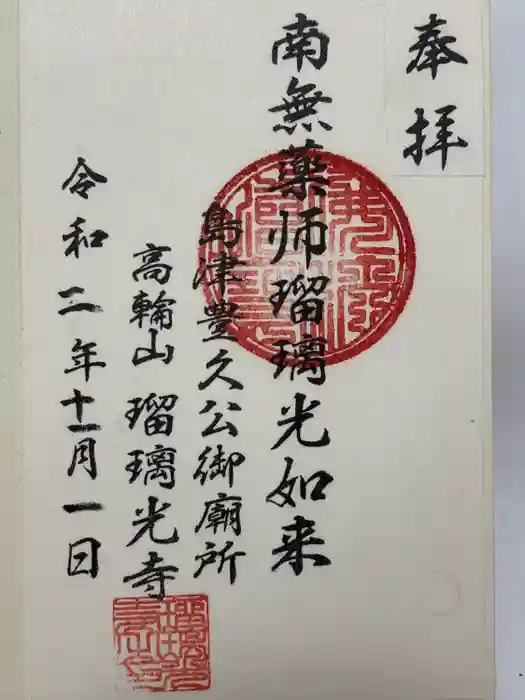 奉拝
南無薬师瑠璃光如来
島津豊久公御廟所
高輪山 瑠璃光寺
令和二年十一月一日